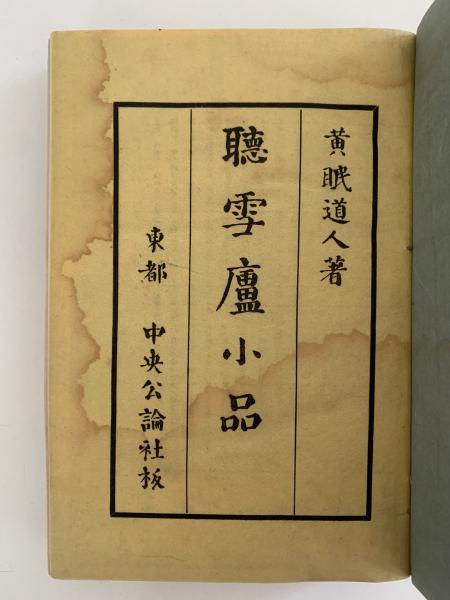 黄眠道人著
聽雪廬小品
東都 中央公論社板